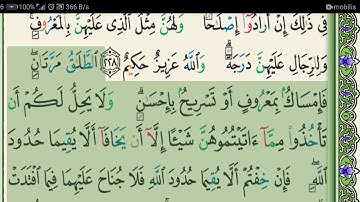 6 100% 366 B/s mobilis
فِى ذَٰلِكَ إِنْ أَرَادُوٓا۟ إِصْلَٰحًا ۚ وَلَهُنَّ مِثْلُ ٱلَّذِى عَلَيْهِنَّ بِٱلْمَعْرُوفِ ۚ
وَلِلرِّجَالِ عَلَيْهِنَّ دَرَجَةٌ ۗ وَٱللَّهُ عَزِيزٌ حَكِيمٌ ٢٢٨ ٱلطَّلَٰقُ مَرَّتَانِ ۖ
فَإِمْسَاكٌۢ بِمَعْرُوفٍ أَوْ تَسْرِيحٌۢ بِإِحْسَٰنٍ ۗ وَلَا يَحِلُّ لَكُمْ أَن
تَأْخُذُوا۟ مِمَّآ ءَاتَيْتُمُوهُنَّ شَيْـًٔا إِلَّآ أَن يَخَافَآ أَلَّا يُقِيمَا حُدُودَ
ٱللَّهِ ۖ فَإِنْ خِفْتُمْ أَلَّا يُقِيمَا حُدُودَ ٱللَّهِ فَلَا جُنَاحَ عَلَيْهِمَا فِيمَا ٱفْتَدَتْ